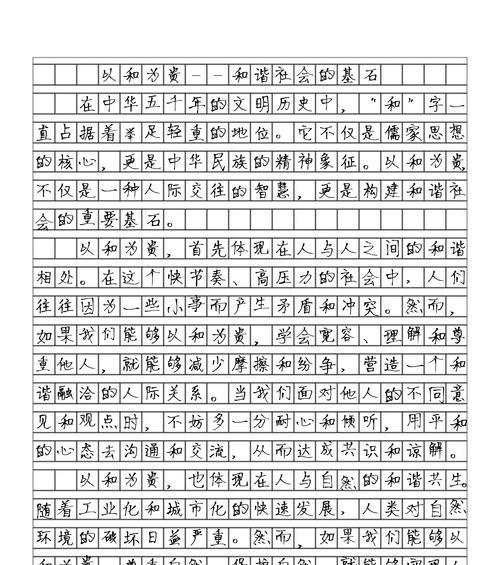 以和为贵--和谐社会的基石
在中华五千年的文明历史中，“和”字一
直占据着举足轻重的地位。它不仅是儒家思想
的核心，更是中华民族的精神象征。以和为贵，
不仅是一种人际交往的智慧，更是构建和谐社
会的重要基石。
以和为贵，首先体现在人与人之间的和谐
相处。在这个快节奏、高压力的社会中，人们
往往因为一些小事而产生矛盾和冲突。然而，
如果我们能够以和为贵，学会宽容、理解和尊
重他人，就能够减少摩擦和纷争，营造一个和
谐融洽的人际关系。当我们面对他人的不同意
见和观点时，不妨多一分耐心和倾听，用平和
的心态去沟通和交流，从而达成共识和谅解。
以和为贵，也体现在人与自然的和谐共生。
随着工业化和城市化的快速发展，人类对自然
环境的破坏日益严重。然而，如果我们能够以
和为贵，尊重自然、保护自然，就能够